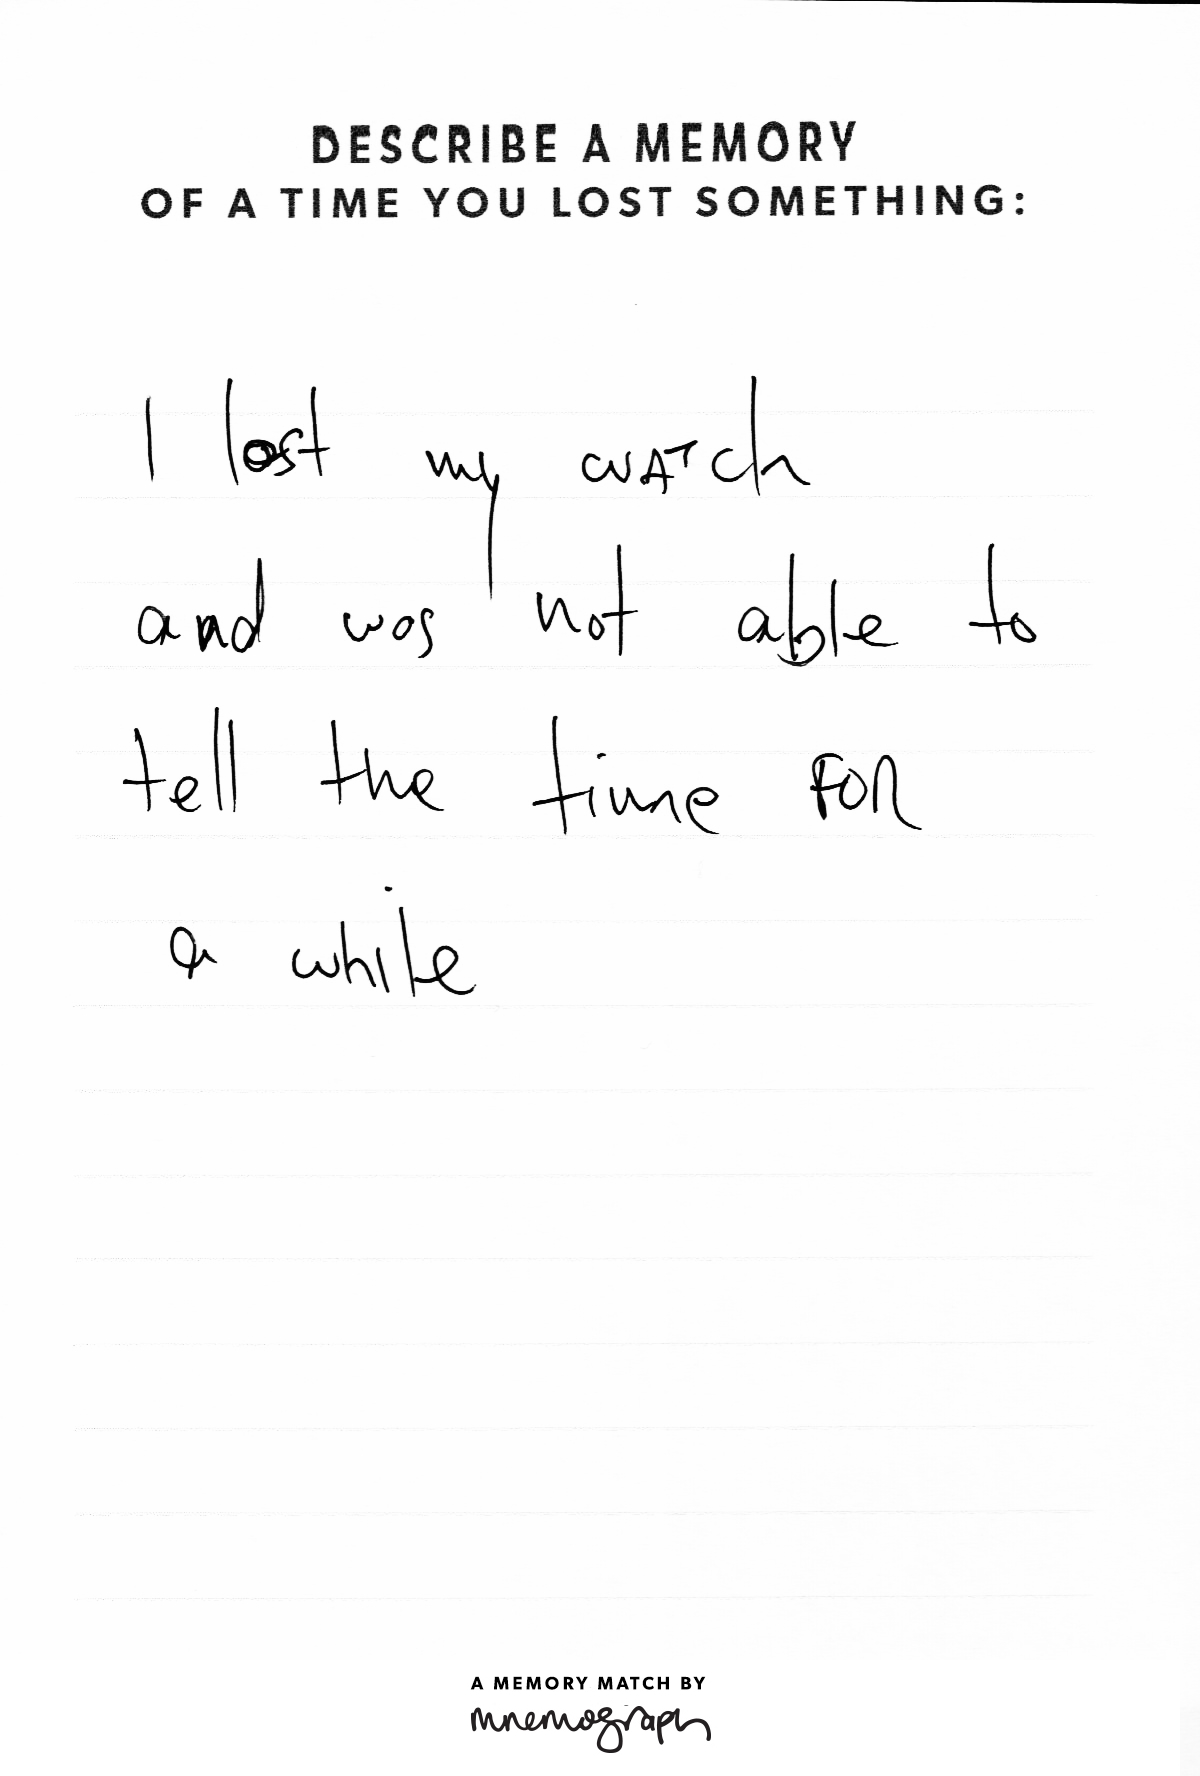 DESCRIBE A MEMORY
OF A TIME YOU LOST SOMETHING:
I lost my wATch
and was not able to
tell the time FOR
a while
A MEMORY MATCH BY
mnemograph